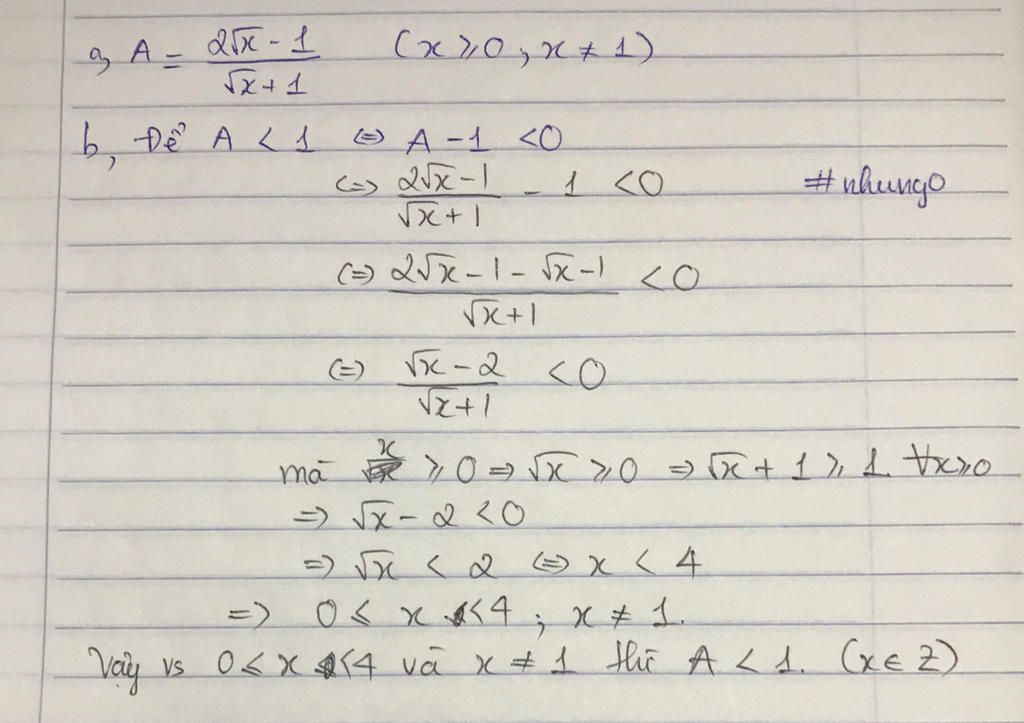 a, A = (2√x - 1)/(√x + 1) (x ≥ 0, x ≠ 1)
b, Để A < 1 ⇔ A - 1 < 0
⇔ (2√x - 1)/(√x + 1) - 1 < 0 #nhung0
⇔ (2√x - 1 - √x - 1)/(√x + 1) < 0
⇔ (√x - 2)/(√x + 1) < 0
mà x ≥ 0 ⇒ √x ≥ 0 ⇒ √x + 1 ≥ 1. ∀x ≥ 0
⇒ √x - 2 < 0
⇒ √x < 2 ⇔ x < 4
⇒ 0 ≤ x < 4 ; x ≠ 1.
Vậy vs 0 ≤ x < 4 và x ≠ 1 thì A < 1. (x ∈ Z)